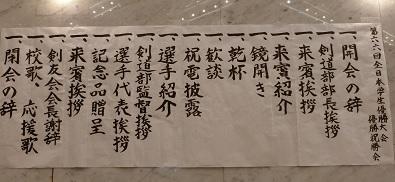 第六六回全日本学生優勝大会
優勝祝勝会
一、開会の辞
一、剣道部部長挨拶
一、来賓挨拶
一、来賓紹介
一、鏡開き
一、乾杯
一、歓談
一、祝電披露
一、選手紹介
一、剣道部監督挨拶
一、選手代表挨拶
一、記念品贈呈
一、来賓挨拶
一、剣友会会長謝辞
一、校歌、応援歌
一、閉会の辞